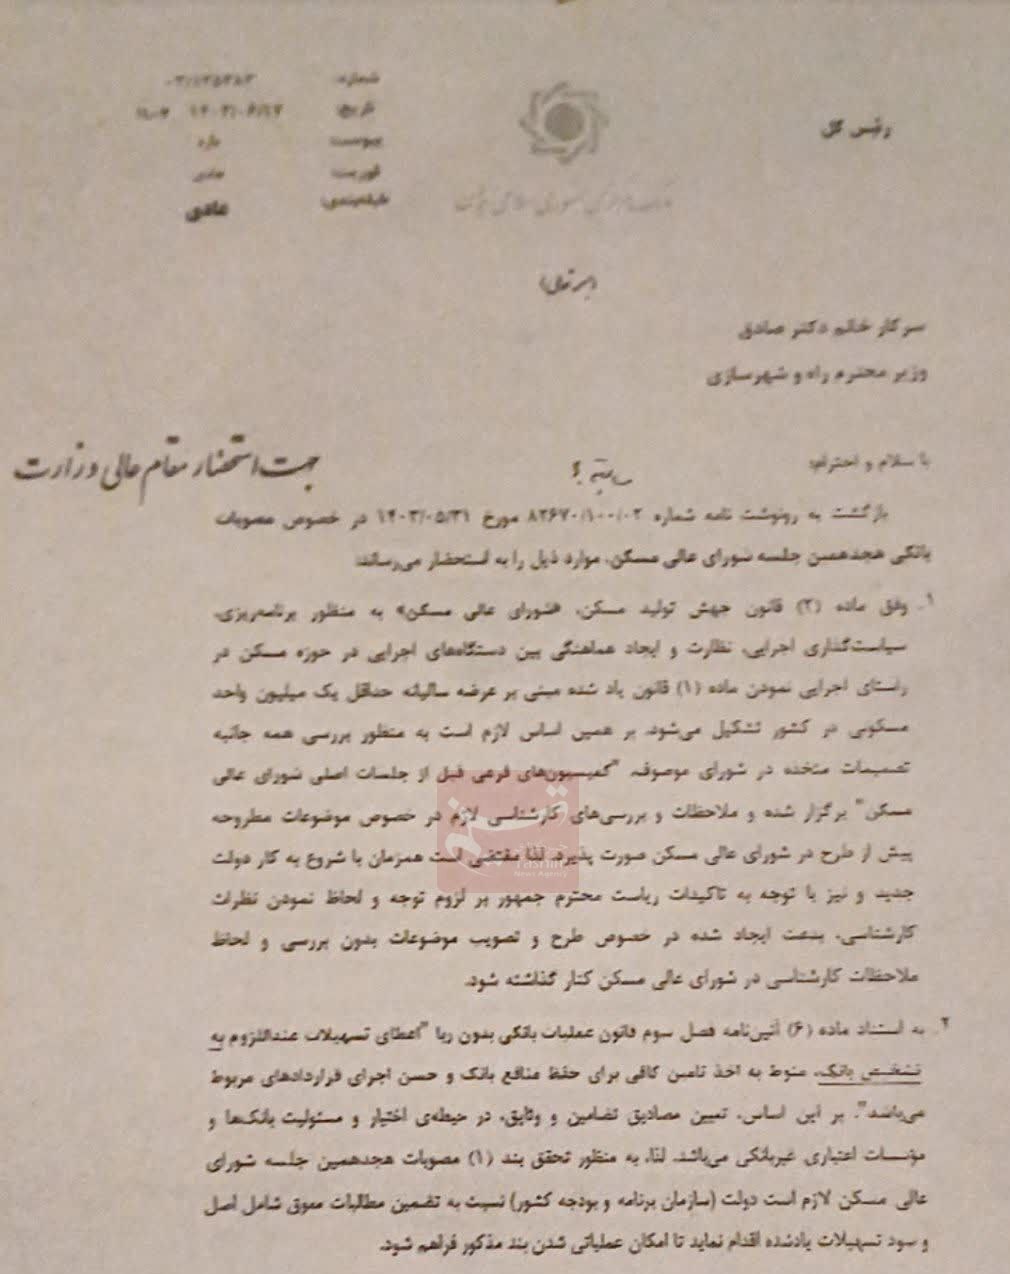 رئیس کل
شماره:
تاریخ: ۱۴۰۳/۰۶/۱۷
پیوست:
فوریت: عادی
طبقه‌بندی: عادی
(بسمه تعالی)
سرکار خانم دکتر صادق
وزیر محترم راه و شهرسازی
جهت استحضار مقام عالی وزارت
با سلام و احترام؛
بازگشت به رونوشت نامه شماره ۸۲۶۷۰/۱۰۰/۰۲ مورخ ۱۴۰۳/۰۵/۳۱ در خصوص مصوبات
بانکی هجدهمین جلسه شورای عالی مسکن، موارد ذیل را به استحضار می‌رساند:
۱. وفق ماده (۲) قانون جهش تولید مسکن، «شورای عالی مسکن» به منظور برنامه‌ریزی،
سیاست‌گذاری اجرایی، نظارت و ایجاد هماهنگی بین دستگاه‌های اجرایی در حوزه مسکن در
راستای اجرایی نمودن ماده (۱) قانون یاد شده مبنی بر عرضه سالیانه حداقل یک میلیون واحد
مسکونی در کشور تشکیل می‌شود. بر همین اساس لازم است به منظور بررسی همه جانبه
تصمیمات متخذه در شورای موصوف، "کمیسیون‌های فرعی قبل از جلسات اصلی شورای عالی
مسکن" برگزار شده و ملاحظات و بررسی‌های کارشناسی لازم در خصوص موضوعات مطروحه
پیش از طرح در شورای عالی مسکن صورت پذیرد. لذا مقتضی است همزمان با شروع به کار دولت
جدید و نیز با توجه به تاکیدات ریاست محترم جمهور بر لزوم توجه و لحاظ نمودن نظرات
کارشناسی، بدعت ایجاد شده در خصوص طرح و تصویب موضوعات بدون بررسی و لحاظ
ملاحظات کارشناسی در شورای عالی مسکن کنار گذاشته شود.
۲. به استناد ماده (۶) آئین‌نامه فصل سوم قانون عملیات بانکی بدون ربا "اعطای تسهیلات عنداللزوم به
تشخیص بانک، منوط به اخذ تامین کافی برای حفظ منافع بانک و حسن اجرای قراردادهای مربوط
می‌باشد". بر این اساس، تعیین مصادیق تضامین و وثایق، در حیطه‌ی اختیار و مسئولیت بانک‌ها و
مؤسسات اعتباری غیربانکی می‌باشد. لذا، به منظور تحقق بند (۱) مصوبات هجدهمین جلسه شورای
عالی مسکن لازم است دولت (سازمان برنامه و بودجه کشور) نسبت به تضمین مطالبات معوق شامل اصل
و سود تسهیلات یادشده اقدام نماید تا امکان عملیاتی شدن بند مذکور فراهم شود.
تسنیم
Tasnim
News Agency